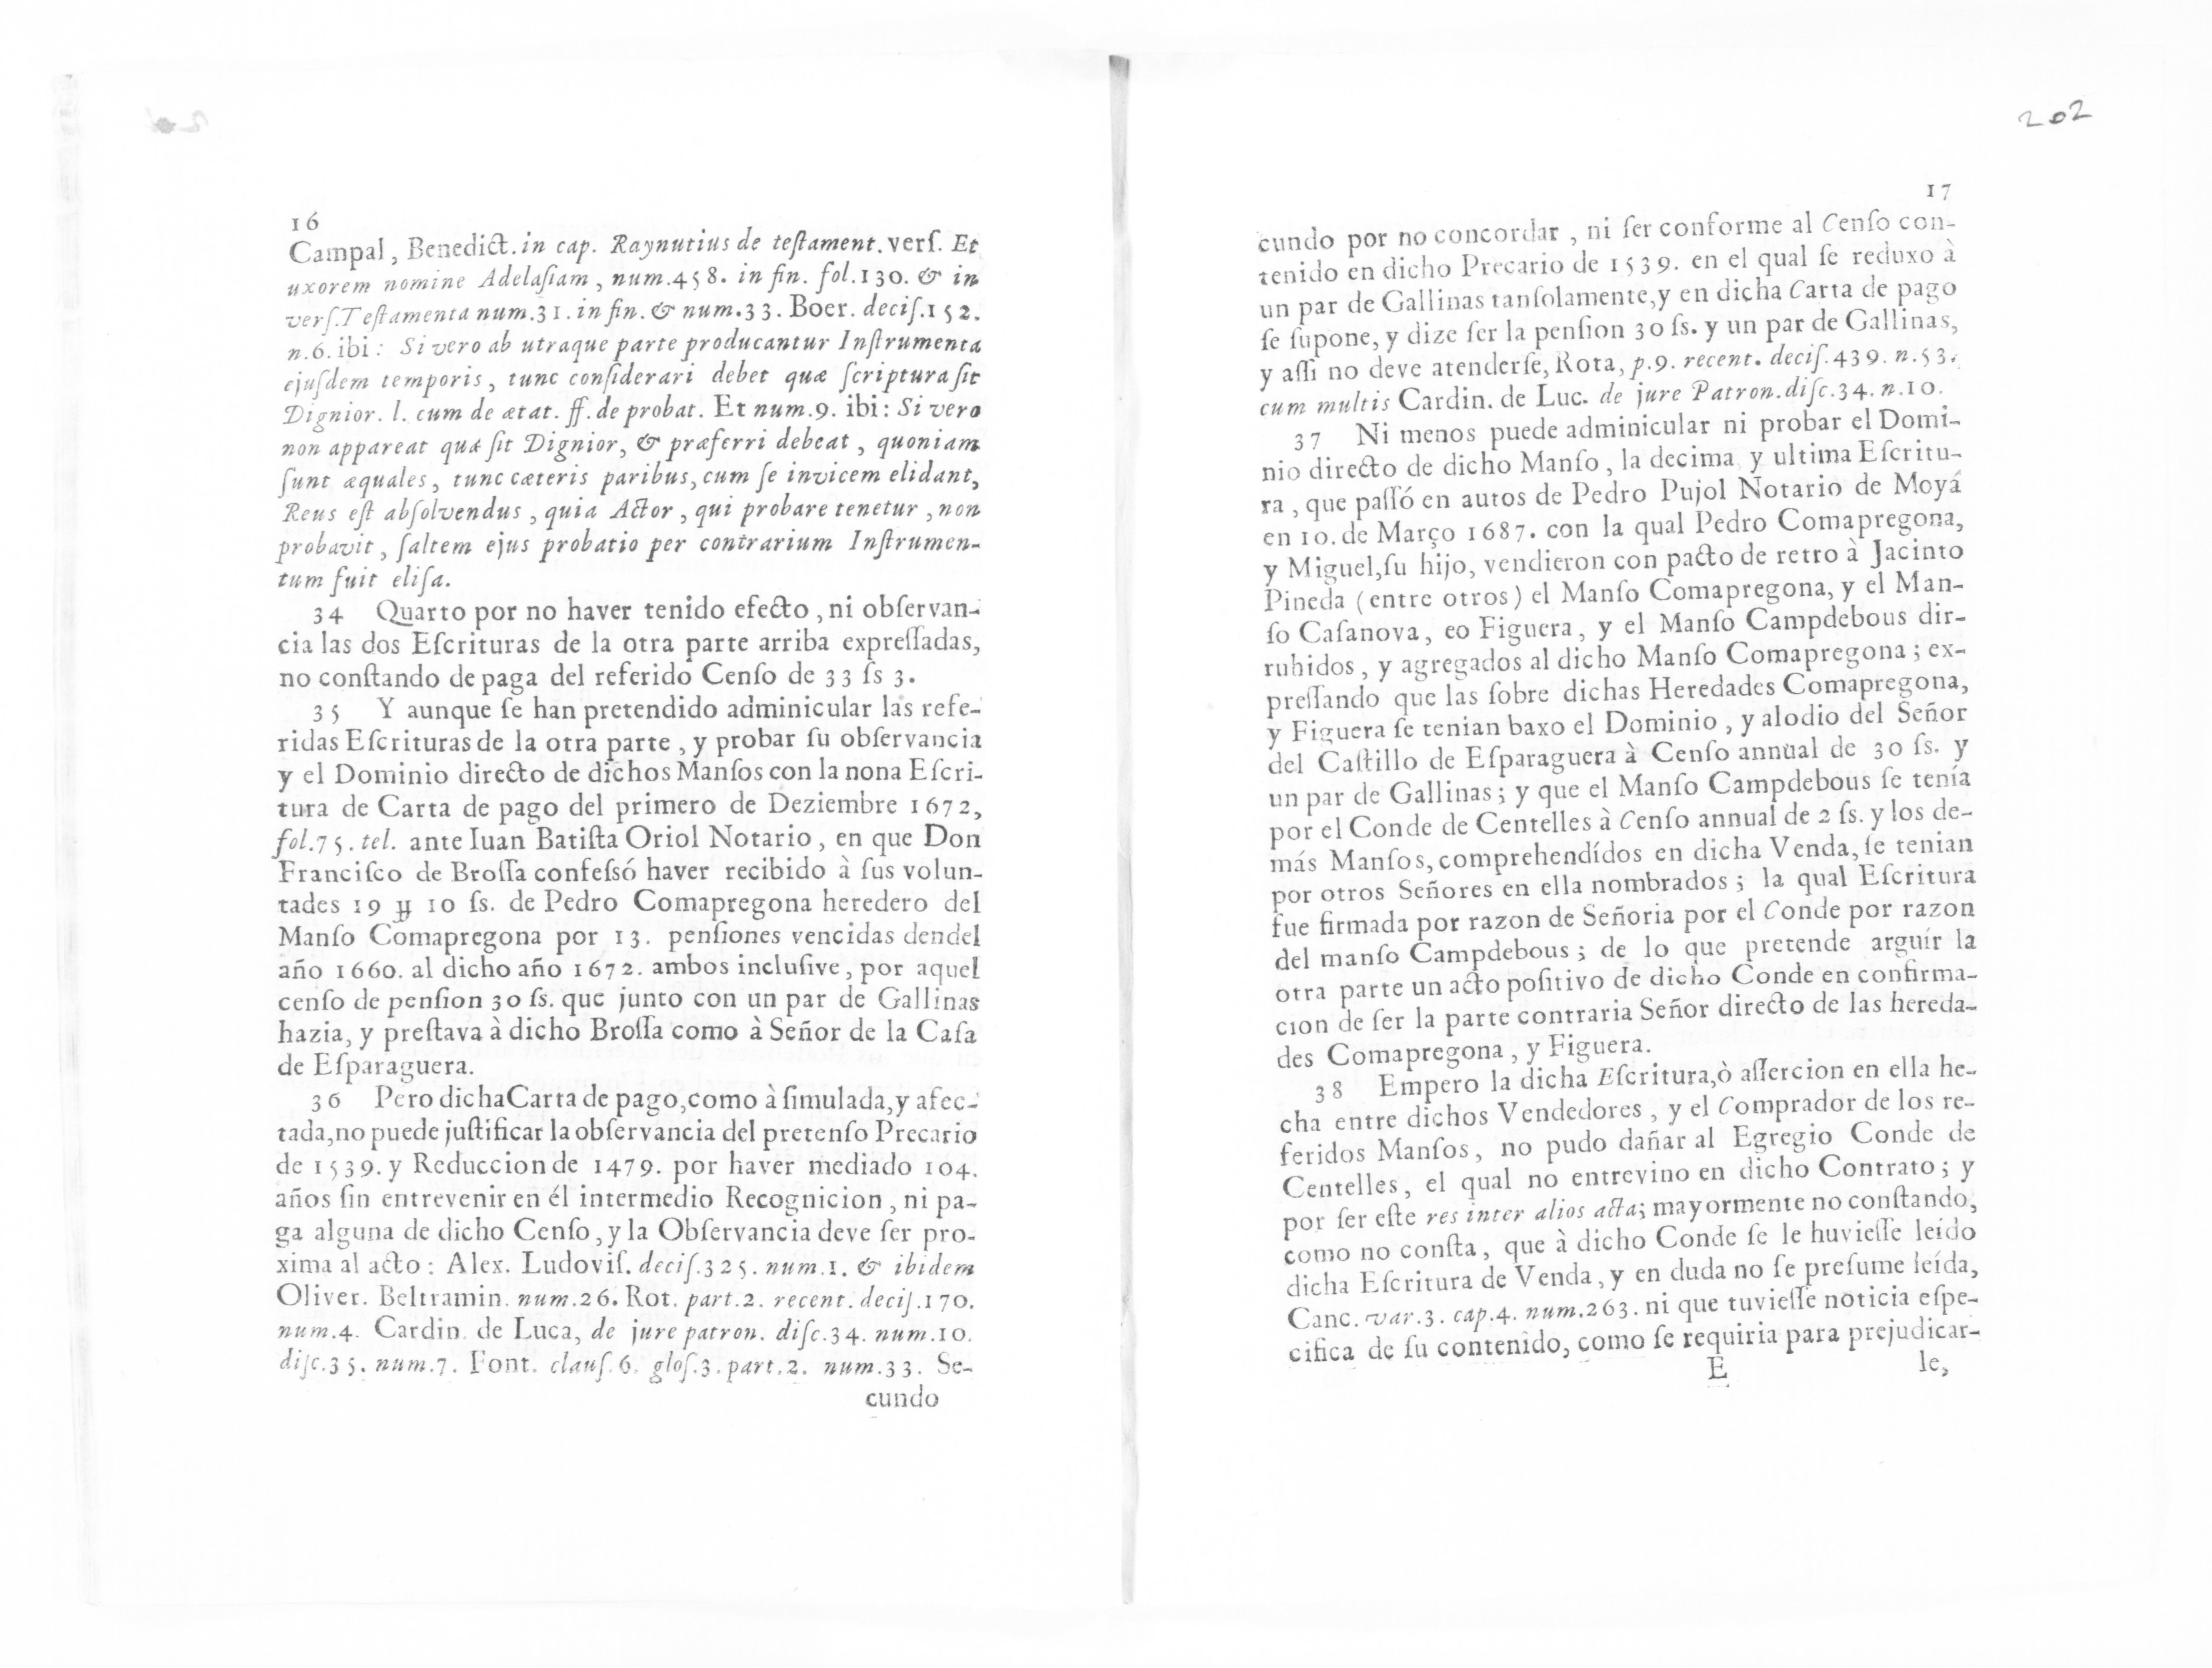 16
Campal, Benedict. in cap. Raynutius de teſtament. verſ. Et
uxorem nomine Adelaſiam, num.458. in fin. fol.130. & in
verſ. Teſtamenta num.31. in fin. & num.33. Boer. deciſ.152.
n.6. ibi: Si vero ab utraque parte producantur Inſtrumenta
ejuſdem temporis, tunc conſiderari debet quæ ſcriptura ſit
Dignior. l. cum de ætat. ff. de probat. Et num.9. ibi: Si vero
non appareat quæ ſit Dignior, & præferri debeat, quoniam
ſunt æquales, tunc cæteris paribus, cum ſe invicem elidant,
Reus eſt abſolvendus, quia Actor, qui probare tenetur, non
probavit, ſaltem ejus probatio per contrarium Inſtrumen-
tum fuit eliſa.
34 Quarto por no haver tenido efecto, ni obſervan-
cia las dos Eſcrituras de la otra parte arriba expreſſadas,
no conſtando de paga del referido Cenſo de 33 ſs 3.
35 Y aunque ſe han pretendido adminicular las refe-
ridas Eſcrituras de la otra parte, y probar ſu obſervancia
y el Dominio directo de dichos Manſos con la nona Eſcri-
tura de Carta de pago del primero de Deziembre 1672,
fol.75. tel. ante Iuan Batiſta Oriol Notario, en que Don
Franciſco de Broſſa confeſsó haver recibido à ſus volun-
tades 19 ꝟ 10 ſs. de Pedro Comapregona heredero del
Manſo Comapregona por 13. penſiones vencidas dendel
año 1660. al dicho año 1672. ambos incluſive, por aquel
cenſo de penſion 30 ſs. que junto con un par de Gallinas
hazia, y preſtava à dicho Broſſa como à Señor de la Caſa
de Eſparaguera.
36 Pero dicha Carta de pago, como à ſimulada, y afec-
tada, no puede juſtificar la obſervancia del pretenſo Precario
de 1539. y Reduccion de 1479. por haver mediado 104.
años ſin entrevenir en él intermedio Recognicion, ni pa-
ga alguna de dicho Cenſo, y la Obſervancia deve ſer pro-
xima al acto: Alex. Ludoviſ. deciſ.325. num.1. & ibidem
Oliver. Beltramin. num.26. Rot. part.2. recent. deciſ.170.
num.4. Cardin. de Luca, de jure patron. diſc.34. num.10.
diſc.35. num.7. Font. clauſ.6. gloſ.3. part.2. num.33. Se-
cundo
202
17
cundo por no concordar, ni ſer conforme al Cenſo con-
tenido en dicho Precario de 1539. en el qual ſe reduxo à
un par de Gallinas tanſolamente, y en dicha Carta de pago
ſe ſupone, y dize ſer la penſion 30 ſs. y un par de Gallinas,
y aſſi no deve atenderſe, Rota, p.9. recent. deciſ.439. n.53.
cum multis Cardin. de Luc. de jure Patron. diſc.34. n.10.
37 Ni menos puede adminicular ni probar el Domi-
nio directo de dicho Manſo, la decima y ultima Eſcritu-
ra, que paſſó en autos de Pedro Pujol Notario de Moyá
en 10. de Março 1687. con la qual Pedro Comapregona,
y Miguel, ſu hijo, vendieron con pacto de retro à Jacinto
Pineda (entre otros) el Manſo Comapregona, y el Man-
ſo Caſanova, eo Figuera, y el Manſo Campdebous dir-
ruhidos, y agregados al dicho Manſo Comapregona; ex-
preſſando que las ſobre dichas Heredades Comapregona,
y Figuera ſe tenian baxo el Dominio, y alodio del Señor
del Caſtillo de Eſparaguera à Cenſo annual de 30 ſs. y
un par de Gallinas; y que el Manſo Campdebous ſe tenía
por el Conde de Centelles à Cenſo annual de 2 ſs. y los de-
más Manſos, comprehendídos en dicha Venda, ſe tenian
por otros Señores en ella nombrados; la qual Eſcritura
fue firmada por razon de Señoria por el Conde por razon
del manſo Campdebous; de lo que pretende arguír la
otra parte un acto poſitivo de dicho Conde en confirma-
cion de ſer la parte contraria Señor directo de las hereda-
des Comapregona, y Figuera.
38 Empero la dicha Eſcritura, ò aſſercion en ella he-
cha entre dichos Vendedores, y el Comprador de los re-
feridos Manſos, no pudo dañar al Egregio Conde de
Centelles, el qual no entrevino en dicho Contrato; y
por ſer eſte res inter alios acta; mayormente no conſtando,
como no conſta, que à dicho Conde ſe le huvieſſe leído
dicha Eſcritura de Venda, y en duda no ſe preſume leída,
Canc. var.3. cap.4. num.263. ni que tuvieſſe noticia eſpe-
cifica de ſu contenido, como ſe requiria para prejudicar-
E le,